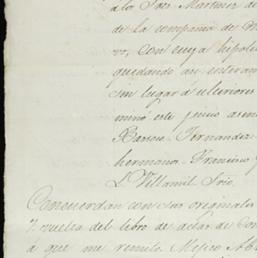 a los Sres Martinez de
de la compania de
con cuya hipot
quedando an enteram
sin lugar á ulteriores
minó este juicio
Fernandez
hermano. Francisco
L. Villamil Srio.
Concuerdan con sus originales
y vuelta del libro de actas de con
á que me remito. Mexico Ab